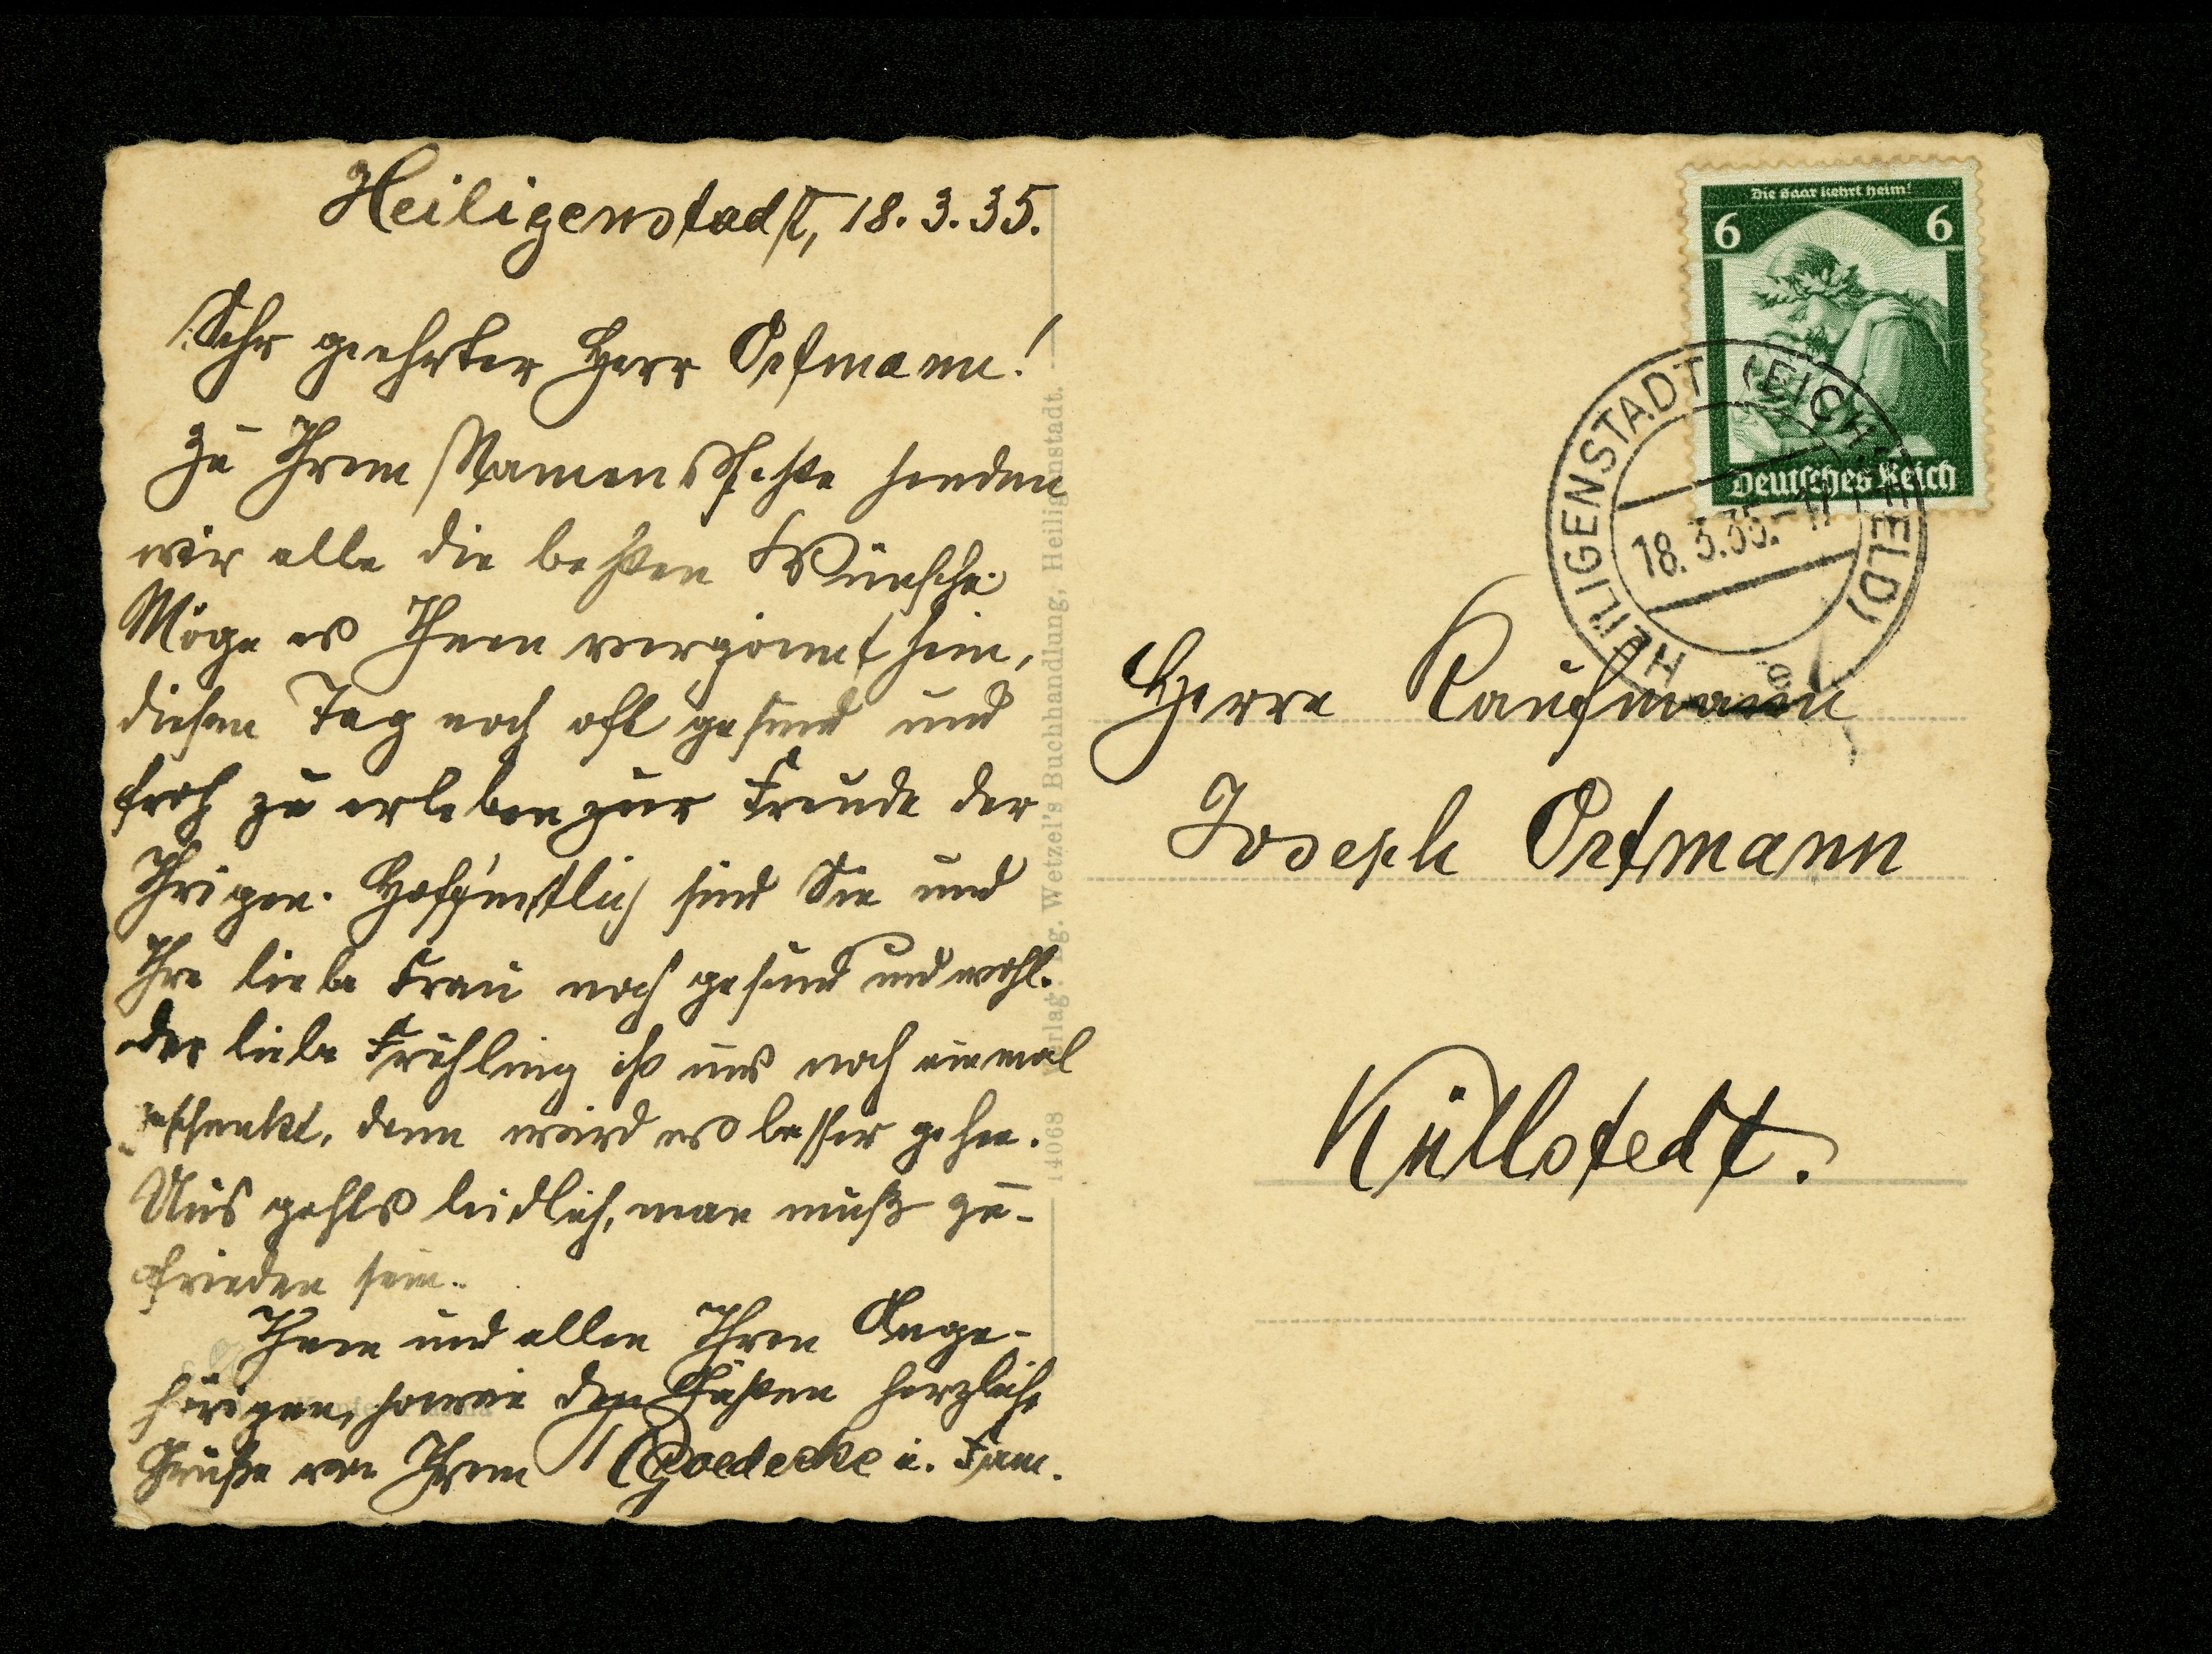 Heiligenstadt, 18.3.35.
Sehr geehrter Herr Ortmann!
Zu Ihrem Namensfeste senden
wir alle die besten Wünsche.
Möge es Ihnen vergönnt sein,
diesen Tag noch oft gesund und
froh zu erleben zur Freude der
Ihrigen. Hoffentlich sind Sie und
Ihre liebe Frau noch gesund und wohl.
Der liebe Frühling ist uns noch einmal
geschenkt, dann wird es besser gehen.
Uns gehts leidlich, man muß zu-
frieden sein.
Ihnen und allen Ihren Ange-
hörigen, sowie den herzliche
Grüße von Ihrem Goedecke u. Fam.
14068 Verlag: Wetzel's Buchhandlung, Heiligenstadt.
Die Saar kehrt heim!
6 6
Deutsches Reich
HEILIGENSTADT (EICHSFELD)
18.3.35.-17
Herrn Kaufmann
Joseph Ortmann
Küllstedt.